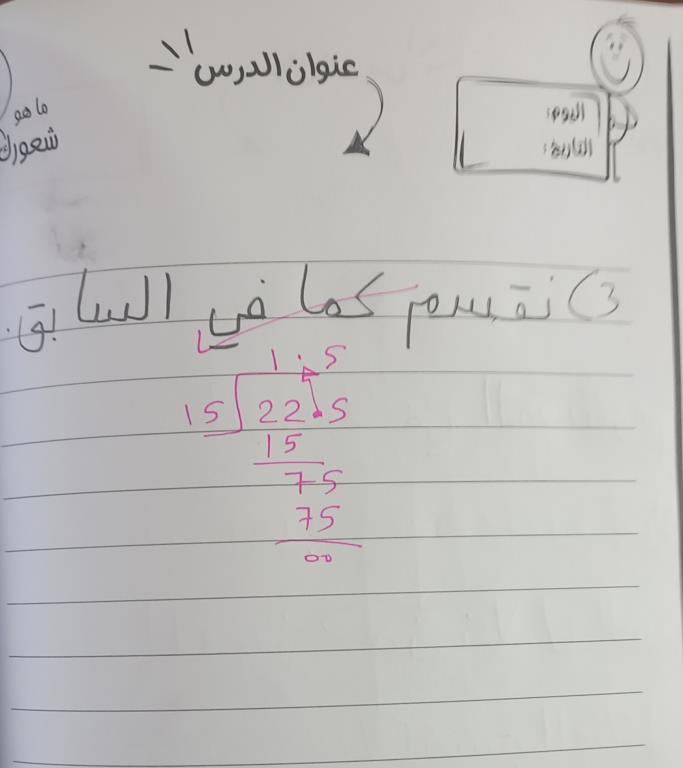 عنوان الدرس
اليوم:
التاريخ:
ما هو
شعورك
3) نقسم كما في السابق.
1.5
15 22.5
15
75
75
00